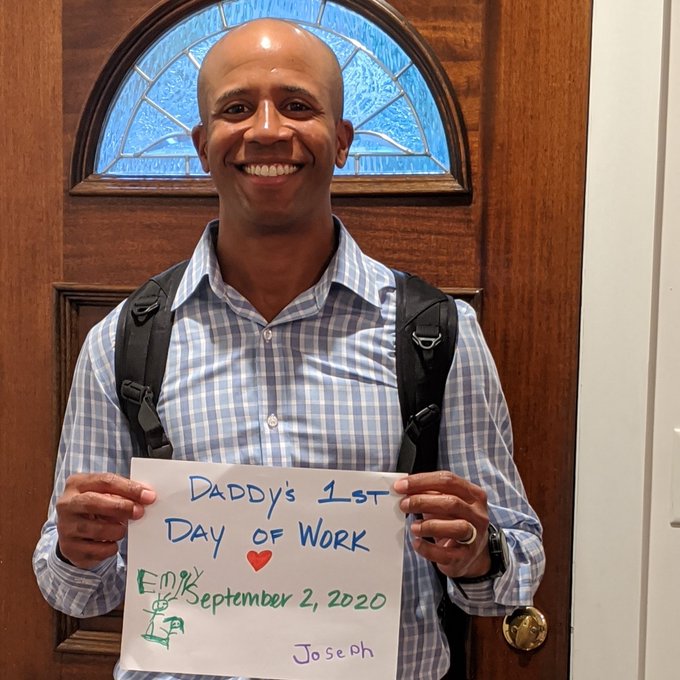 DADDY'S 1ST
DAY OF WORK
EMILY
September 2, 2020
Joseph